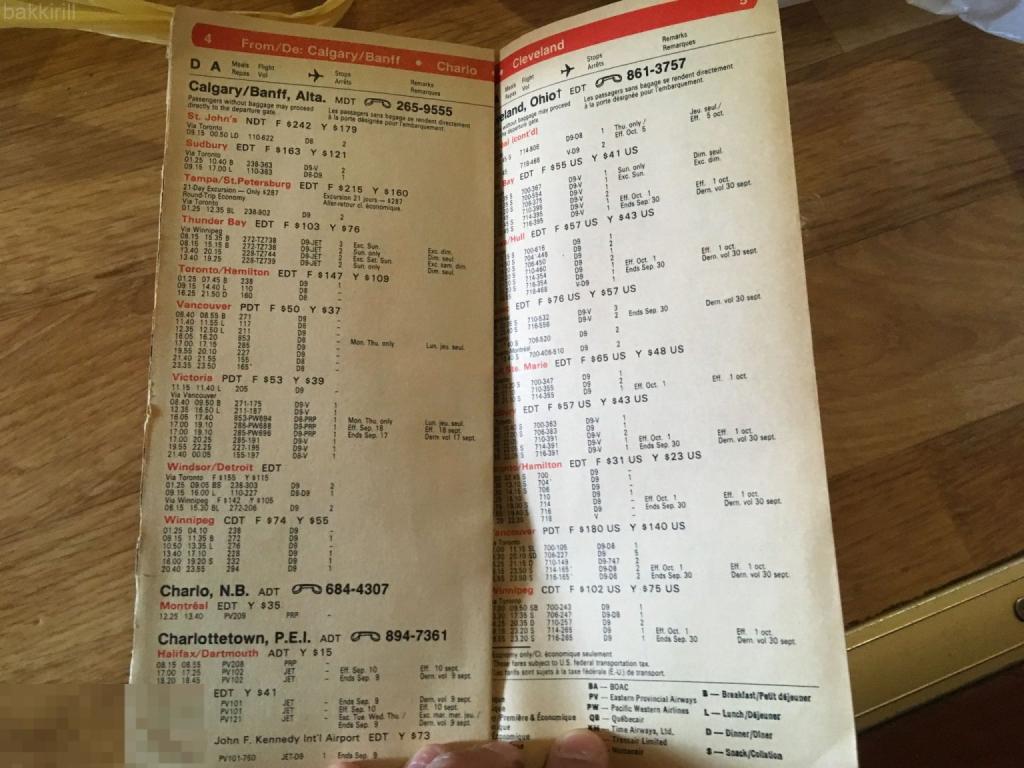 bakkirill
4 From/De: Calgary/Banff • Charlo
D A Meals Repas Flight Vol Stops Arrêts Remarks Remarques
Calgary/Banff, Alta. MDT 265-9555
Passengers without baggage may proceed directly to the departure gate.
Les passagers sans bagage se rendent directement à la porte désignée pour l'embarquement.
St. John's NDT F $242 Y $179
Via Toronto
09.15 00.50 LD 110-622 D8 2
Sudbury EDT F $163 Y $121
Via Toronto
01.25 10.40 B 238-363 D9-V 2
09.15 17.00 L 110-383 D8-D9 1
Tampa/St.Petersburg EDT F $215 Y $160
21-Day Excursion — Only $287 Excursion 21 jours — $287
Round-Trip Economy Aller-retour cl. économique.
Via Toronto
01.25 12.35 BL 238-902 D9 2
Thunder Bay EDT F $103 Y $76
Via Winnipeg
08.15 15.35 B 272-TZ738 D9-JET 3 Exc. Sun. Exc. dim.
08.15 15.15 B 272-TZ738 D9-JET 2 Sun. only Dim. seul.
13.40 20.15 228-TZ744 D9-JET 2 Exc. Sat. Sun. Exc. sam. dim.
13.40 19.25 228-TZ739 D9-JET Sun. only Dim. seul.
Toronto/Hamilton EDT F $147 Y $109
01.25 07.45 B 238 D9 1
09.15 14.40 L 110 D8 -
16.25 21.50 D 160 D8 -
Vancouver PDT F $50 Y $37
08.40 08.55 B 271 D9 -
11.40 11.55 L 117 D8 -
12.35 12.50 L 211 D9 -
16.05 16.20 853 D8 -
17.00 17.15 285 D9 - Mon. Thu. only Lun. jeu. seul.
19.55 20.10 227 D9 -
21.40 21.55 155 D8 -
23.35 23.50 165 D8 -
Victoria PDT F $53 Y $39
11.15 11.40 L 205 D9 -
Via Vancouver
08.40 09.50 B 271-175 D9-V 1
12.35 16.50 L 211-187 D9-V 1
16.05 17.40 853-PW694 D8-PRP 1 Mon. Thu only Lun. jeu. seul.
17.00 19.15 285-PW688 D9-PRP 1 Eff. Sep. 18 Eff. 18 sept.
17.00 19.15 285-PW696 D9-PRP 1 Ends Sep. 17 Dern. vol 17 sept.
17.00 20.25 285-191 D9-V 1
19.55 22.25 227-195 D9-V 1
21.40 00.05 155-197 D8-V 1
Windsor/Detroit EDT
Via Toronto F $155 Y $115
01.25 09.05 BS 238-303 D9 2
09.15 16.00 L 110-227 D8-D9 1
Via Winnipeg F $142 Y $105
08.15 15.30 BL 272-206 D9 2
Winnipeg CDT F $74 Y $55
01.25 04.10 238 D9 -
08.15 11.35 B 272 D9 2
10.50 13.35 L 276 D9 -
13.40 17.10 228 D9 1
16.00 19.20 S 232 D9 1
20.40 23.55 294 D9 1
Charlo, N.B. ADT 684-4307
Montréal EDT Y $35
12.25 13.40 PV209 PRP -
Charlottetown, P.E.I. ADT 894-7361
Halifax/Dartmouth ADT Y $15
08.15 08.55 PV208 PRP -
17.00 17.25 PV102 JET - Eff. Sep. 10 Eff. 10 sept.
18.20 18.45 PV102 JET - Ends Sep. 9 Dern. vol 9 sept.
EDT Y $41
PV101 JET - Ends Sep. 9 Dern. vol 9 sept.
PV101 JET - Eff. Sep. 10 Eff. 10 sept.
PV121 JET - Exc. Tue. Wed. Thu./ Exc. mar. mer. jeu./
Ends Sep. 9 Dern. vol 9 sept.
John F. Kennedy Int'l Airport EDT Y $73
PV101-760 JET-D9 1 Ends Sep. 9
Cleveland 5
Meals Repas Flight Vol Stops Arrêts Remarks Remarques
eland, Ohio† EDT 861-3757
without baggage may proceed
departure gate.
Les passagers sans bagage se rendent directement à la porte désignée pour l'embarquement.
(cont'd)
714-806 D9-D8 1 Thu. only/ Jeu. seul./
Eff. Oct. 5 Eff. 5 oct.
718-468 V-D9 2
Bay EDT F $55 US Y $41 US
700-367 D9-V 1 Sun. only Dim. seul.
700-554 D9-V 1 Exc. Sun. Exc. dim.
706-375 D9-V 2
710-395 D9-V 1
714-395 D9-V 1 Eff. Oct. 1 Eff. 1 oct.
716-395 D9-V 1 Ends Sep. 30 Dern. vol 30 sept.
/Hull EDT F $57 US Y $43 US
700-616 D9 1
704-448 D9 2
706-450 D9 1
710-460 D9 1
714-354 D9 1 Eff. Oct. 1 Eff. 1 oct.
716-354 D9 1 Ends Sep. 30 Dern. vol 30 sept.
718-468 V-D9 1
EDT F $76 US Y $57 US
710-532 D9-V 3
716-556 D9-V 2 Ends Sep. 30 Dern. vol 30 sept.
706-520 D9 2
Montréal
700-406-510 D9 2
Ste. Marie EDT F $65 US Y $48 US
700-347 D9 1
710-355 D9 2 Eff. Oct. 1 Eff. 1 oct.
714-355 D9 1
EDT F $57 US Y $43 US
700-363 D9-V 1
706-383 D9 2
710-391 D9-V 1
714-391 D9-V 1 Eff. Oct. 1 Eff. 1 oct.
716-391 D9-V 1 Ends Sep. 30 Dern. vol 30 sept.
onto/Hamilton EDT F $31 US Y $23 US
700 D9 -
704 D9 -
706 D9 -
710 D9 -
714 D9 - Eff. Oct. 1 Eff. 1 oct.
716 D9 - Ends Sep. 30 Dern. vol 30 sept.
718 V -
ancouver PDT F $180 US Y $140 US
ia Toronto
11.15 SL 700-105 D9-D8 1
20.10 SD 706-227 D9 5
710-149 D9-747 2
23.50 S 714-165 D9-D8 2 Eff. Oct. 1 Eff. 1 oct.
23.50 S 716-165 D9-D8 2 Ends Sep. 30 Dern. vol 30 sept.
innipeg CDT F $102 US Y $75 US
Toronto
09.50 SB 700-243 D9 1
17.35 S 706-247 D9-D8 1
20.35 D 710-257 D9 2
23.20 S 714-265 D9 1 Eff. Oct. 1 Eff. 1 oct.
23.20 S 716-265 D9 1 Ends Sep. 30 Dern. vol 30 sept.
Economy only/Cl. économique seulement
These fares subject to U.S. federal transportation tax.
Les tarifs sont sujets à la taxe fédérale (É.-U.) de transport.
BA — BOAC
PV — Eastern Provincial Airways
PW — Pacific Western Airlines
QB — Québecair
Time Airways, Ltd.
Transair Limited
Première & Économique
B — Breakfast/Petit déjeuner
L — Lunch/Déjeuner
D — Dinner/Dîner
S — Snack/Collation